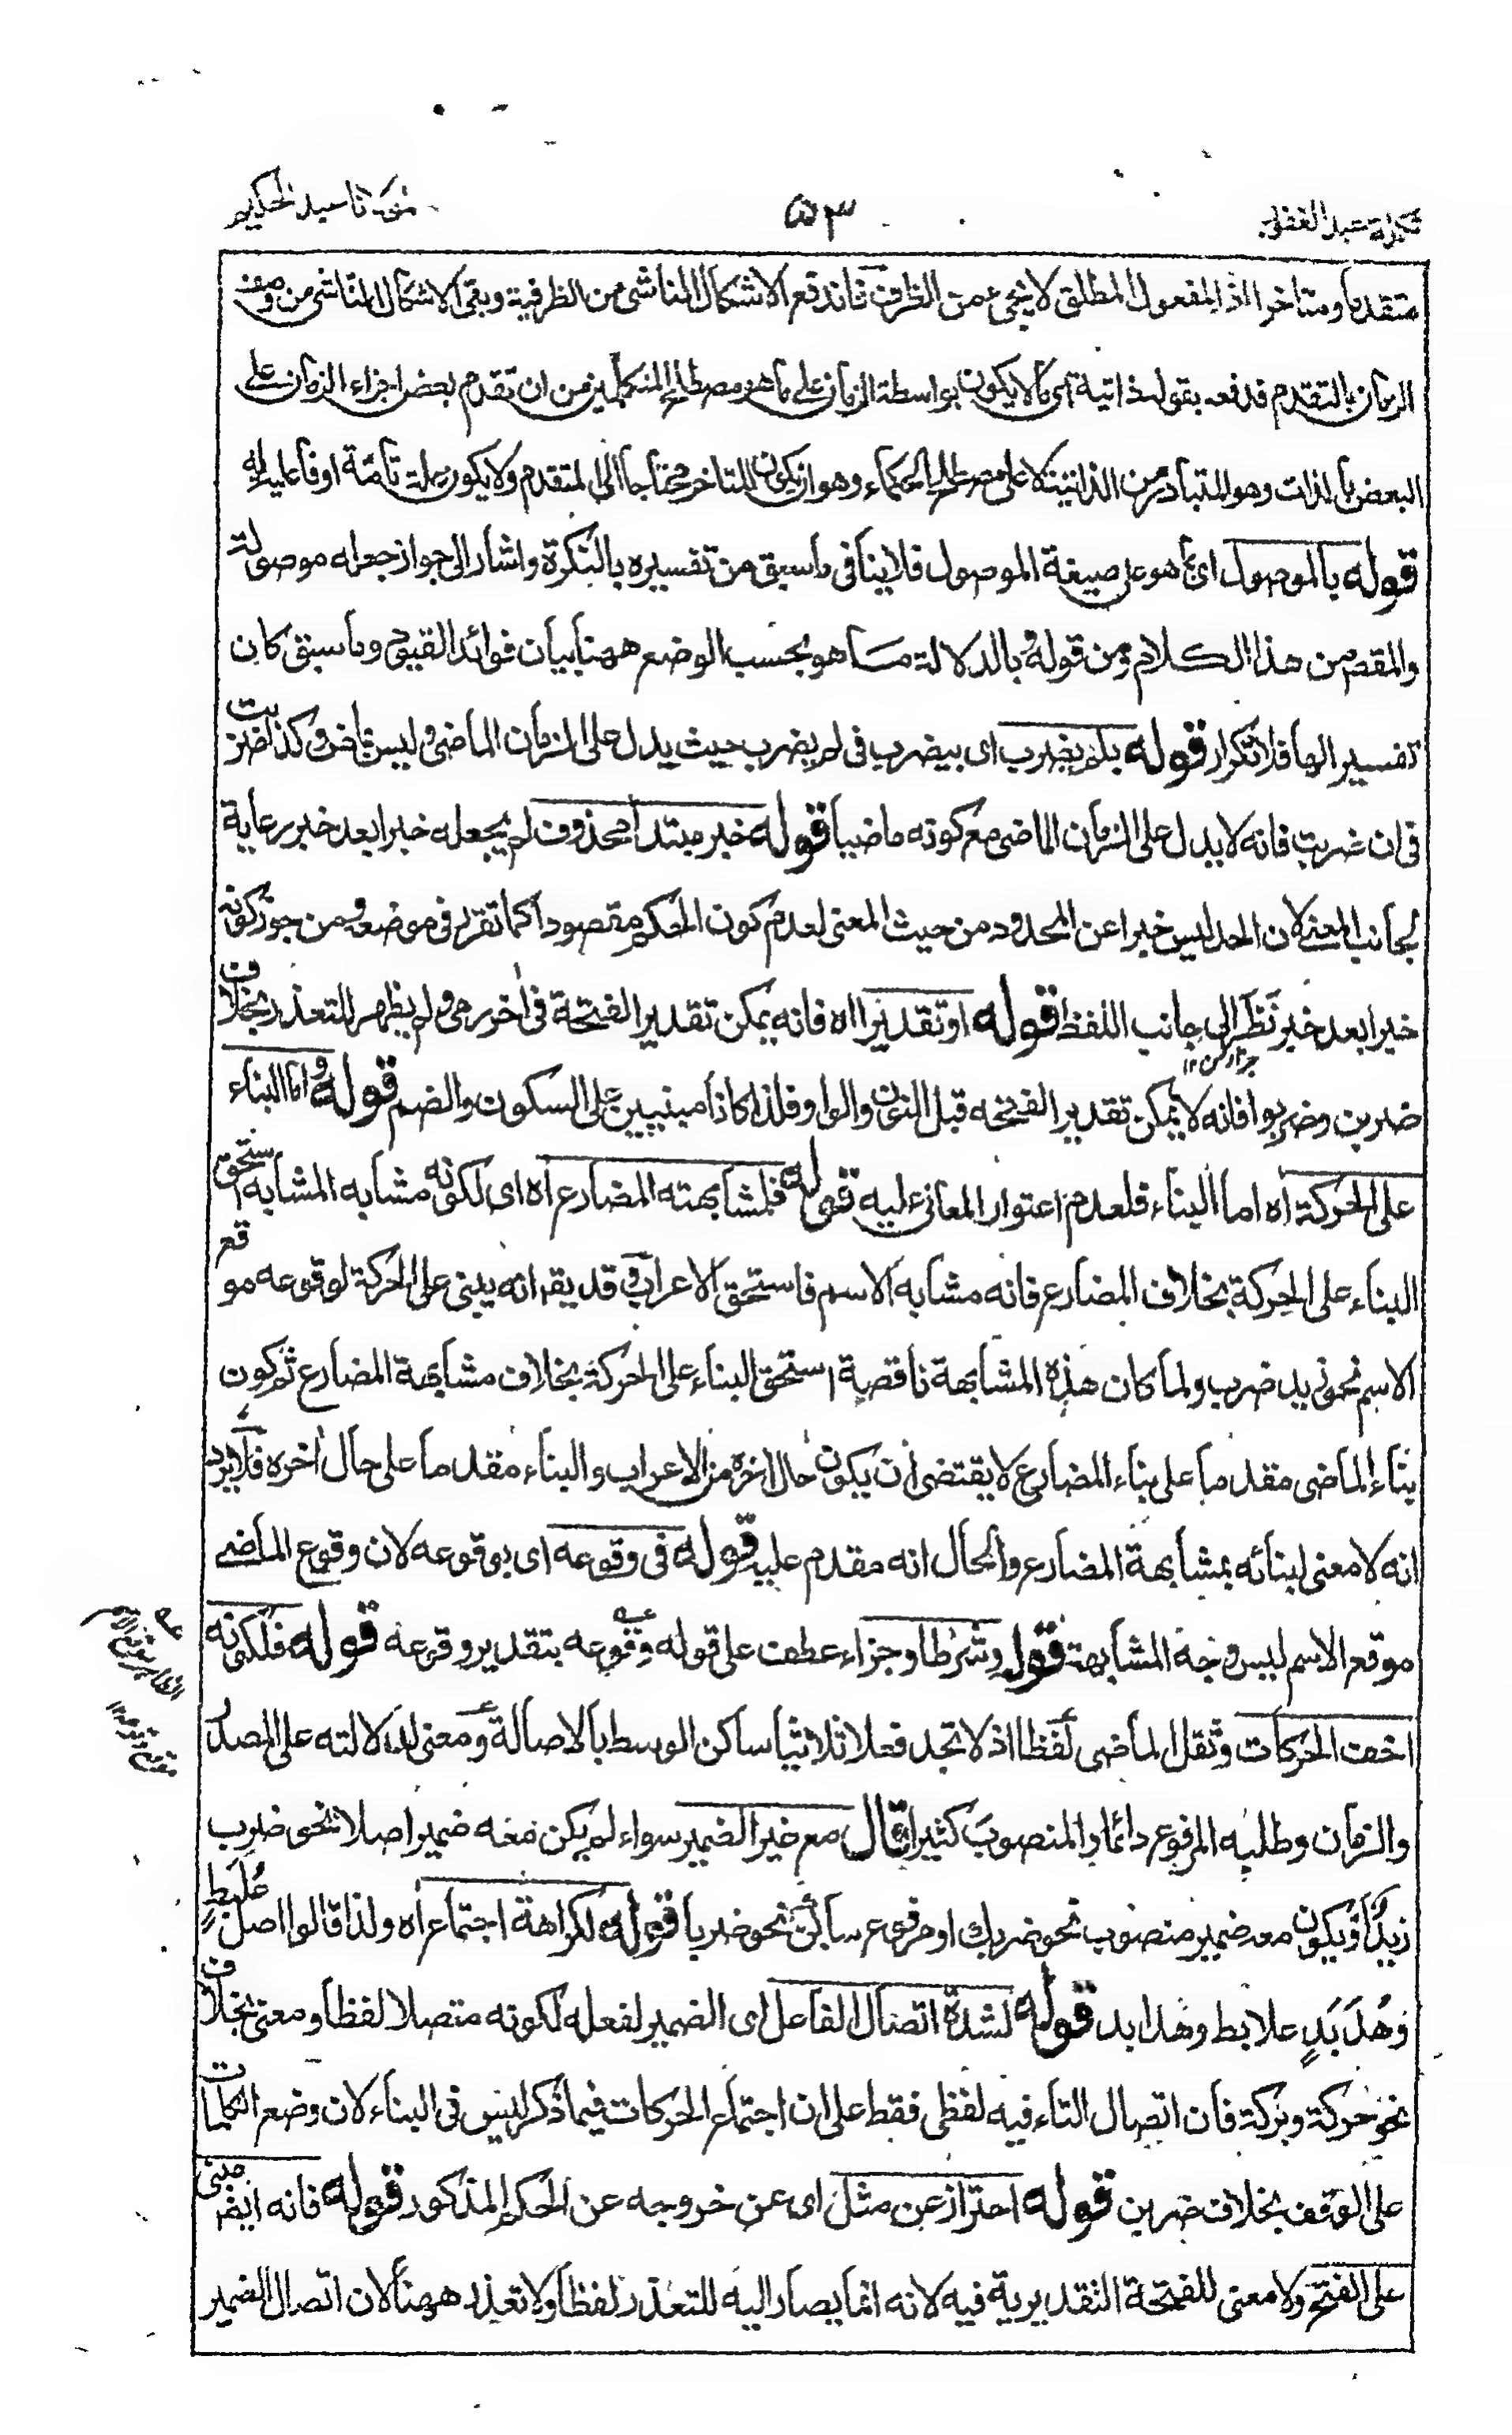 تكملة عبد الغفور
٥٣
متقدما ومتاخرا اذ المفعول المطلق لا يجئ عن الظرف فاندفع الاشكال الناشى من الظرفية وبقى الاشكال الناشى من وصف
الزمان بالتقدم فدفعه بقوله ذاتية اى ما لا يكون بواسطة الزمان على ما هو مصطلح المتكلمين من ان تقدم بعض اجزاء الزمان على
البعض بالذات وهو المتبادر من الذاتية لا على مصطلح الحكماء وهو ان يكون المتاخر محتاجا الى المتقدم ولا يكون علة تامة او فاعلية له
قوله بالموصول اى بما هو على صيغة الموصول فلا ينافى ما سبق من تفسيره بالنكرة واشار الى جواز جعله موصولة
والمقصم من هذا الكلام ومن قوله وبالدلالة ما هو بحسب الوضع ههنا بيان فوائد القيود وما سبق كان
تفسيرا لها فلا تكرار قوله بلم يضرب اى بيضرب فى لم يضرب حيث يدل على الزمان الماضى وليس بماض وكذا ضربت
فى ان ضربت فانه لا يدل على الزمان الماضى مع كونه ماضيا قوله خبر مبتدأ محذوف لم يجعله خبرا بعد خبر رعاية
لجانب المعنى لان الحد ليس خبرا عن المحدود من حيث المعنى لعدم كون الحكم مقصودا كما تقرر فى موضعه ومن جوز كونه
خبرا بعد خبر نظر الى جانب اللفظ قوله او تقديرا اه فانه يمكن تقدير الفتحة فى اخر رمى ولم يظهر للتعذر بخلاف
ضربن وضربوا فانه لا يمكن تقدير الفتحه قبل النون والواو فلذا كانا مبنيين على السكون والضم قوله واما البناء
على الحركة اه اما البناء فلعدم اعتوار المعانى عليه قوله فلمشابهته المضارع اه اى لكونه مشابه المشابه استحق
البناء على الحركة بخلاف المضارع فانه مشابه الاسم فاستحق الاعراب وقد يقم انه يبنى على الحركة لوقوعه موقع
الاسم نحو زيد ضرب ولما كان هذه المشابهة ناقصة استحق البناء على الحركة بخلاف مشابهة المضارع ثم كون
بناء الماضى مقدما على بناء المضارع لا يقتضى ان يكون حال اخره من الاعراب والبناء مقدما على حال اخره فلا يرد
انه لا معنى لبنائه بمشابهة المضارع والحال انه مقدم عليه قوله فى وقوعه اى بوقوعه لان وقوع الماضى
موقع الاسم ليس وجه المشابهة قوله وشرطا وجزاء عطف على قوله وقوعه بتقدير وقوعه قوله فلكونه
اخف الحركات وثقل الماضى لفظا اذ لا تجد فعلا ثلاثيا ساكن الوسط بالاصالة ومعنى لدلالته على المصدر
والزمان وطلبه المرفوع دائما والمنصوب كثيرا قال مع غير الضمير سواء لم يكن معه ضمير اصلا نحو ضرب
زيد او يكون معه ضمير منصوب نحو ضربك او مرفوع ساكن نحو ضربا قوله لكراهة اجتماع اه ولذا قالوا اصل علبط
وهدبد علابط وهدابد قوله لشدة اتصال الفاعل اى الضمير لفعله لكونه متصلا لفظا ومعنى بخلاف
نحو حركة وبركة فان اتصال التاء فيه لفظى فقط على ان اجتماع الحركات فيما ذكر ليس فى البناء لان وضع الكلمات
على الوقف بخلاف ضربن قوله احتراز عن مثل اى عن خروجه عن الحكم المذكور قوله فانه ايضم مبنى
على الفتح ولا معنى للفتحة التقديرية فيه لانه انما يصار اليه للتعذر لفظا ولا تعذر ههنا لان اتصال الضمير